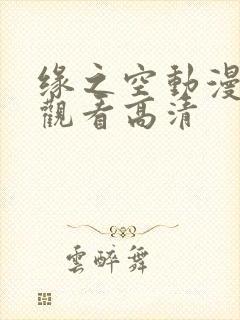 缘之空動漫
觀看高清
雲醉舞